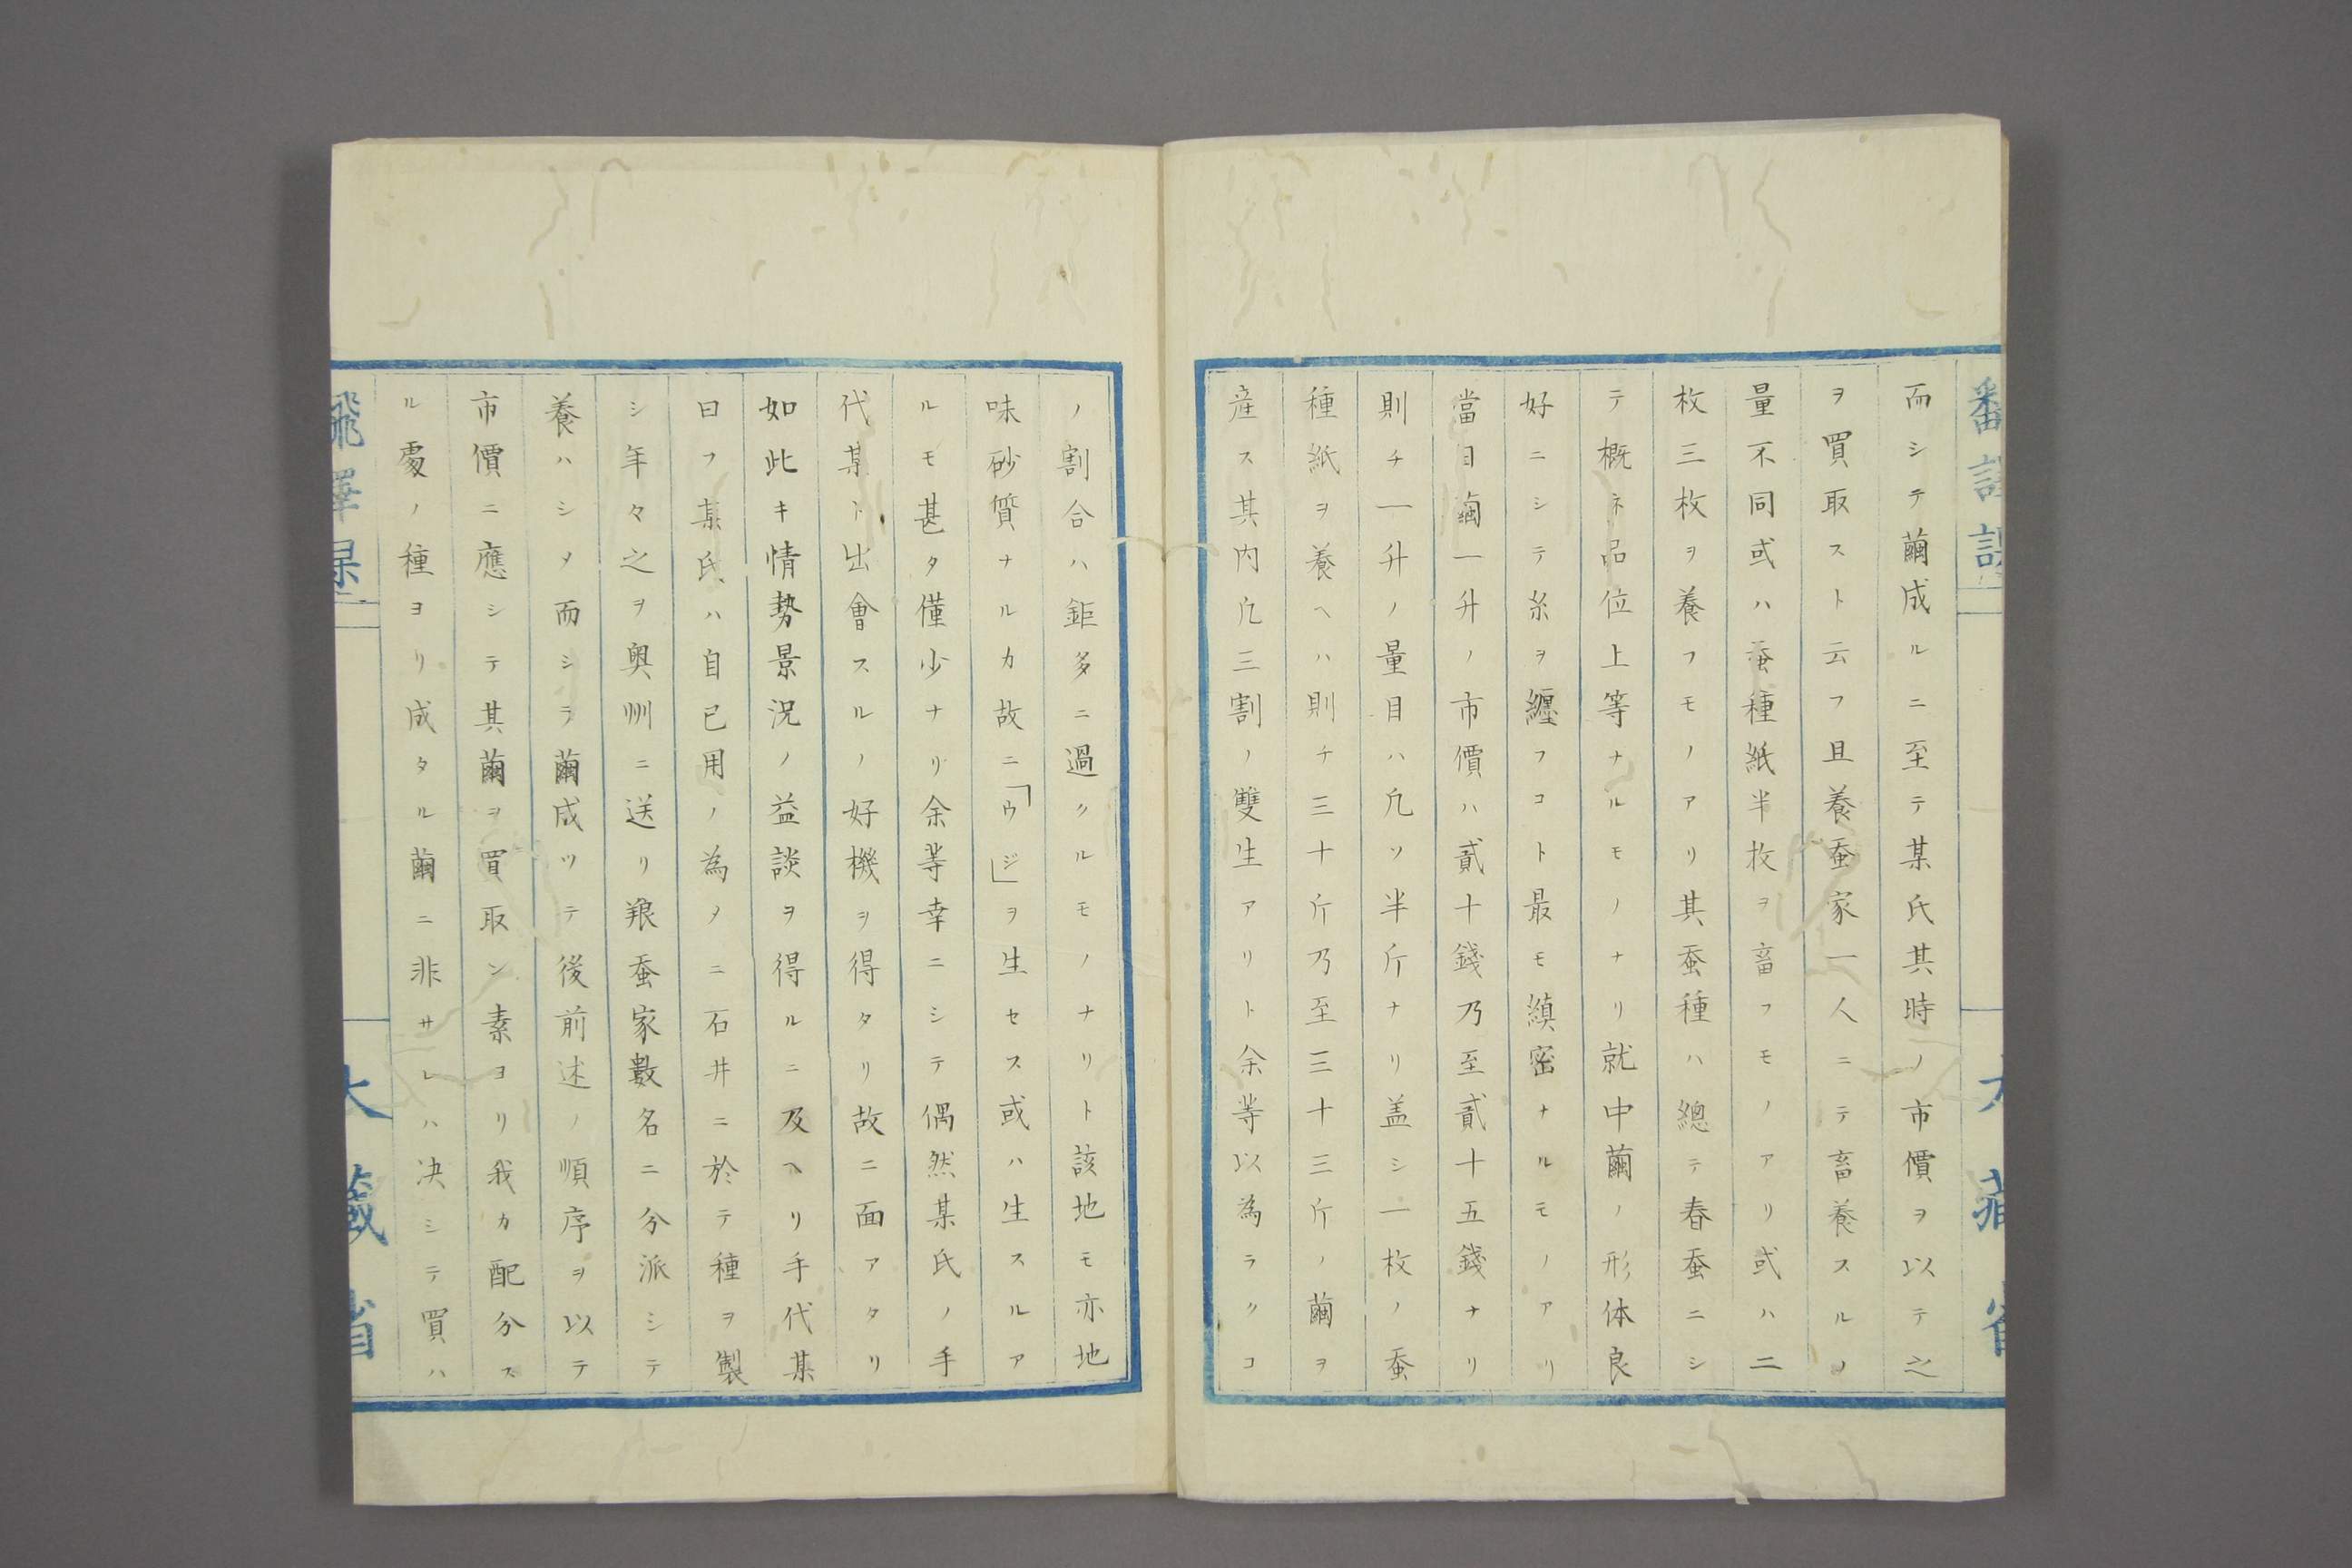 而シテ繭成ルニ至テ某氏其時ノ市價ヲ以テ之
ヲ買取スト云フ且養蚕家一人ニテ畜養スルノ
量不同或ハ蚕種紙半枚ヲ畜フモノアリ或ハ二
枚三枚ヲ養フモノアリ其蚕種ハ總テ春蚕ニシ
テ概ネ品位上等ナルモノナリ就中繭ノ形体良
好ニシテ糸ヲ纏フコト最モ縝密ナルモノアリ
當目繭一升ノ市價ハ貳十錢乃至貳十五錢ナリ
則チ一升ノ量目ハ凢ソ半斤ナリ盖シ一枚ノ蚕
種紙ヲ養ヘハ則チ三十斤乃至三十三斤ノ繭ヲ
産ス其内凢三割ノ雙生アリト余等以為ラクコ
ノ割合ハ鉅多ニ過クルモノナリト該地モ亦地
味砂質ナルカ故ニ「ウジ」ヲ生セス或ハ生スルア
ルモ甚タ僅少ナリ余等幸ニシテ偶然某氏ノ手
代某ト出會スルノ好機ヲ得タリ故ニ面アタリ
如此キ情勢景況ノ益談ヲ得ルニ及ヘリ手代某
曰フ某氏ハ自已用ノ為メニ石井ニ於テ種ヲ製
シ年々之ヲ奥州ニ送リ養蚕家數名ニ分派シテ
養ハシメ而シテ繭成ツテ後前述ノ順序ヲ以テ
市價ニ應シテ其繭ヲ買取ン素ヨリ我カ配分ス
ル處ノ種ヨリ成タル繭ニ非サレハ决シテ買ハ
大藏省